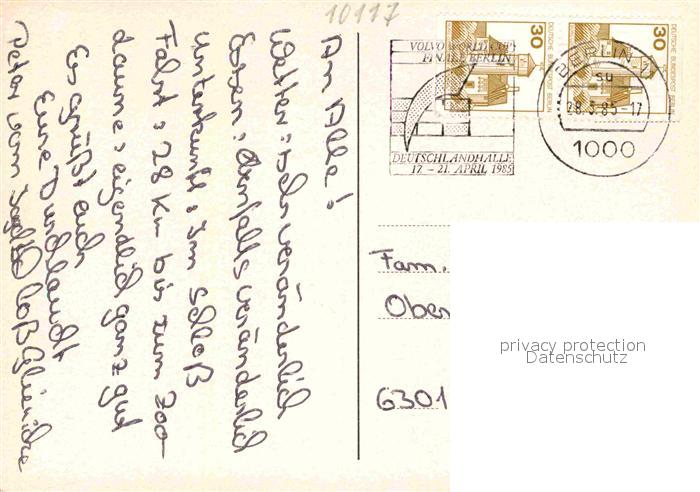 10117
An Alle!
Wetter: sehr veränderlich
Essen: Ebenfalls veränderlich
Unterkunft: Im Schloß
Fahrt: 28 Km bis zum Zoo
Laune: eigendlich ganz gut
Es grüßt euch
Eure Durchlaucht
Peter vom Glienicke
VOLVO WORLD CUP
FINALE BERLIN
DEUTSCHLANDHALLE
17. - 21. APRIL 1985
30
DEUTSCHE BUNDESPOST BERLIN
30
DEUTSCHE BUNDESPOST BERLIN
BERLIN
28.3.85-17
1000
Fam.
Ober
6301
privacy protection
Datenschutz